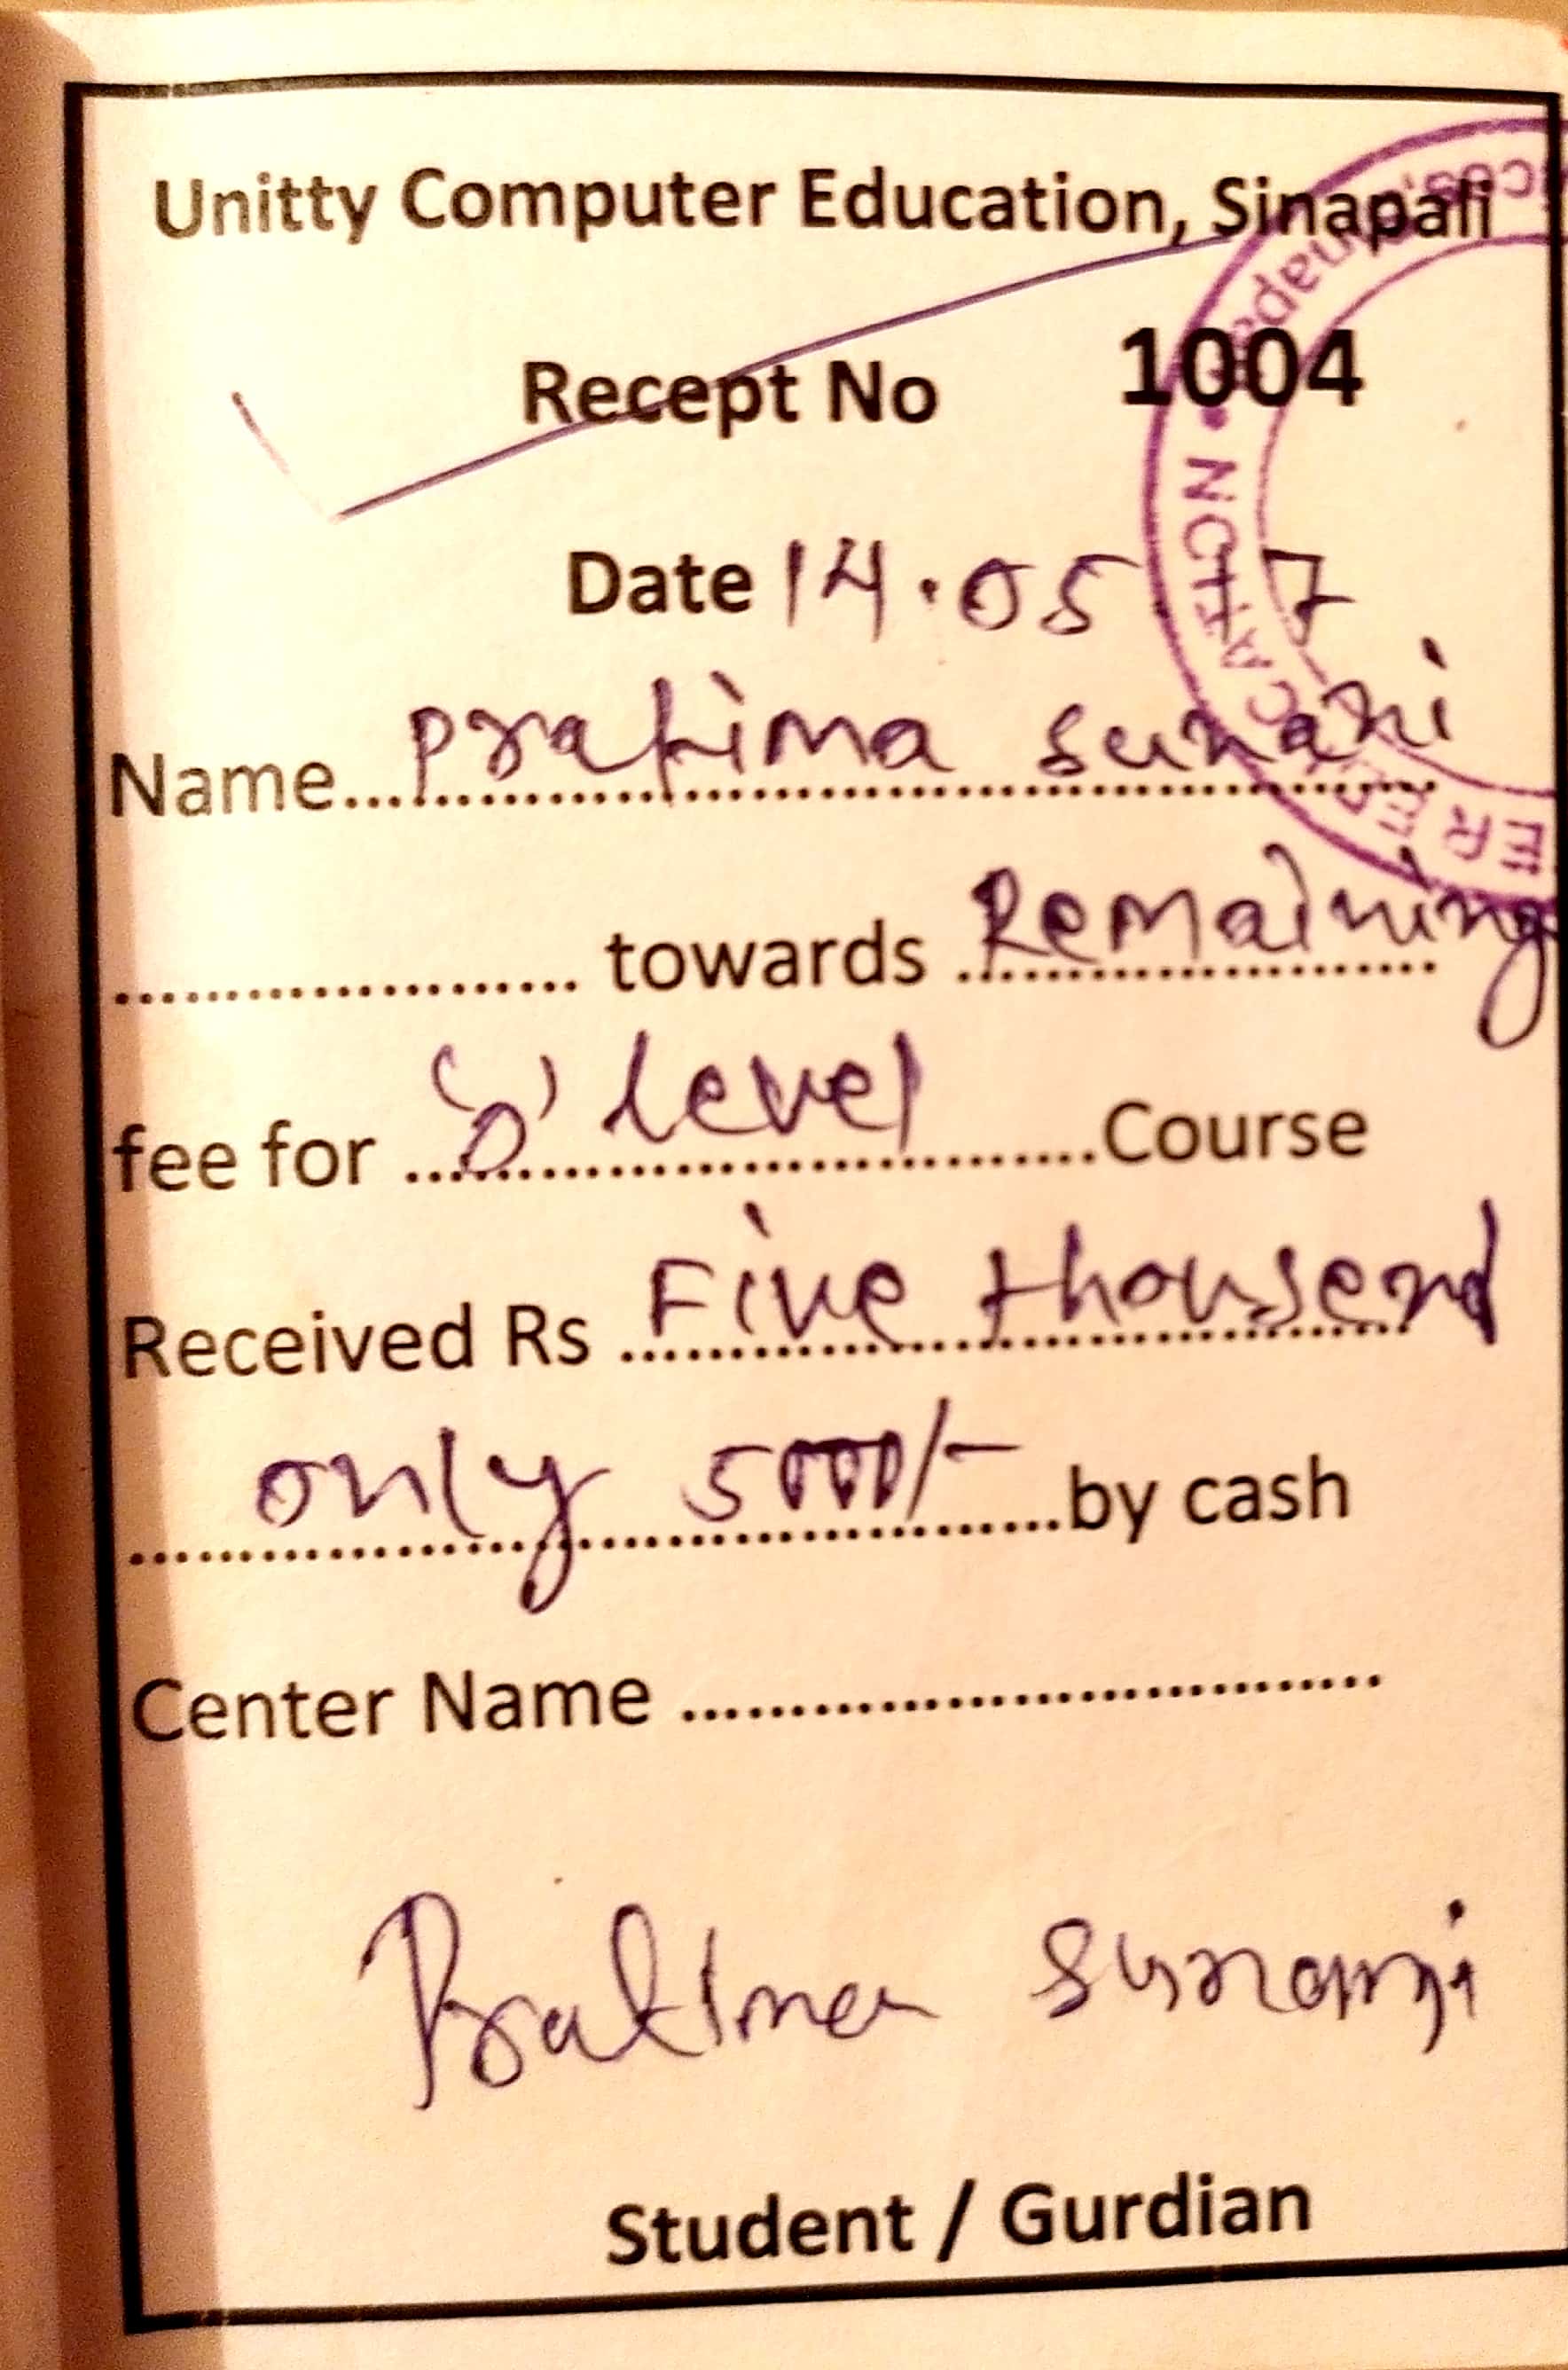 Unitty Computer Education, Sinapali
Recept No 1004
Date 14.05.17
Name... Pratima Sunani
towards Remaining
fee for 'O' level Course
Received Rs Five thousend
only 5000/- by cash
Center Name
Pratima Sunani
Student / Gurdian